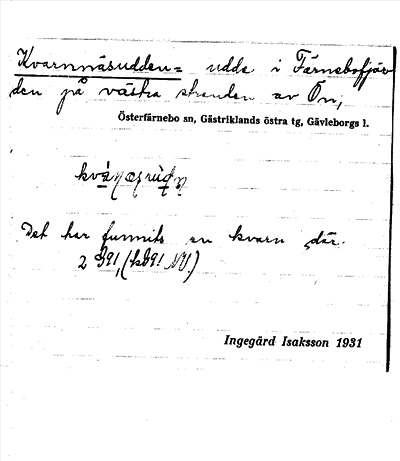 Kvarnnäsudden = udde i Färnebofjär
den på västra stranden av Ön,
Österfärnebo sn, Gästriklands östra tg, Gävleborgs l.
Det har funnits en kvarn där.
Ingegärd Isaksson 1931